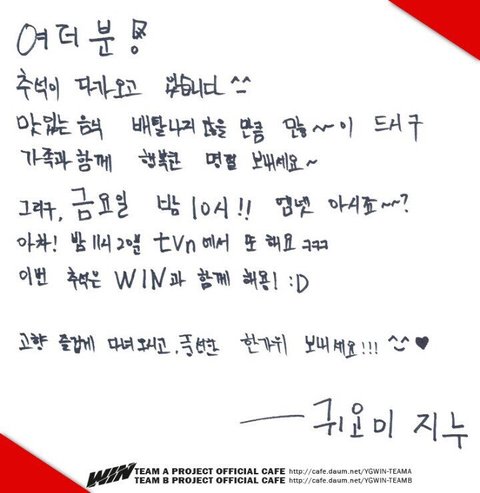 여러분!
추석이 다가오고 있습니다 ^^
맛있는 음식 배탈나지 않을 만큼 많~~이 드시구
가족과 함께 행복한 명절 보내세요~
그리구, 금요일 밤 10시!! 엠넷 아시죠~~?
아차! 밤 11시 20분 tvn에서 또 해요 ㅋㅋㅋ
이번 추석은 WIN과 함께 해용! :D
고향 즐겁게 다녀오시고, 풍성한 한가위 보내세요!!! ^^ ♥
— 귀요미 지누
WIN TEAM A PROJECT OFFICIAL CAFE http://cafe.daum.net/YGWIN-TEAMA
TEAM B PROJECT OFFICIAL CAFE http://cafe.daum.net/YGWIN-TEAMB